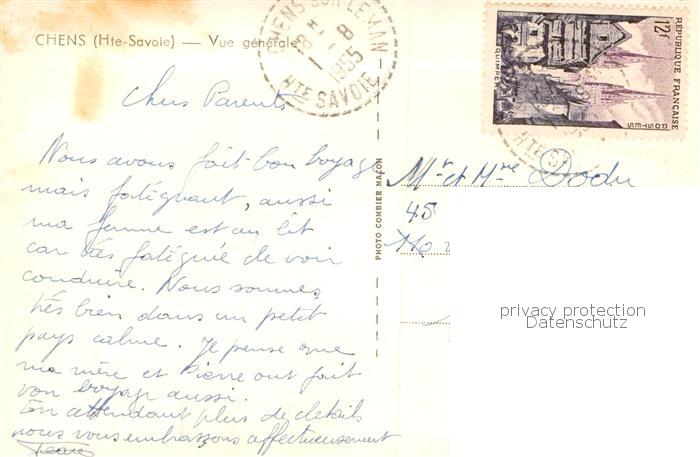 CHENS (Hte-Savoie) — Vue générale
CHENS SUR LEMAN
18 H
1 - 8
1955
HTE SAVOIE
12f
REPUBLIQUE FRANÇAISE
POSTES
QUIMPER
HTE S
Chers Parents
Nous avons fait bon voyage
mais fatiguant, aussi
ma femme est au lit
car très fatiguée de voir
conduire. Nous sommes
très bien dans un petit
pays calme. Je pense que
ma mère et Pierre ont fait
bon voyage aussi.
En attendant plus de details
nous vous embrassons affectueusement
Jean
PHOTO COMBIER MACON
Mr et Mme Dodu
45
privacy protection
Datenschutz